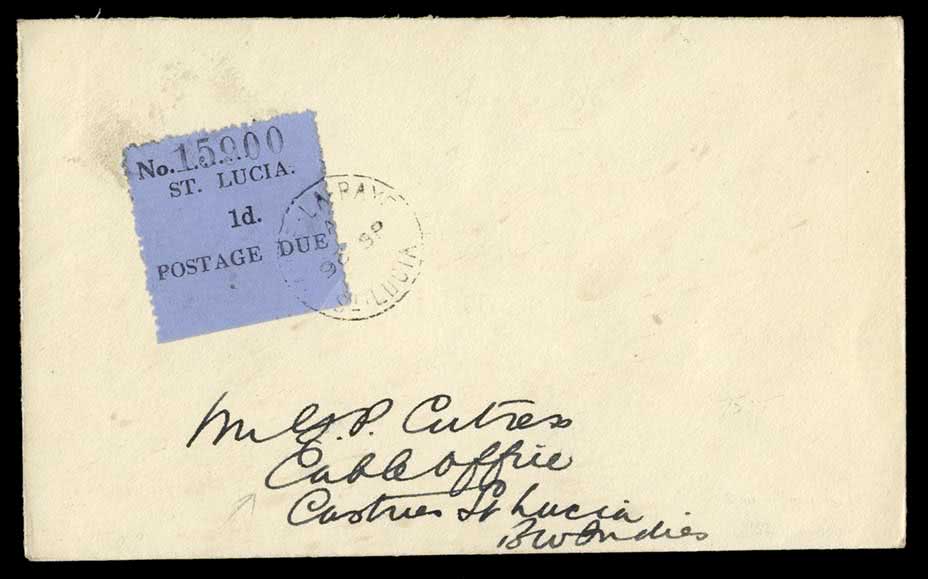 No. 15900
ST. LUCIA.
1d.
POSTAGE DUE
LA-RAYE
SP
ST. LUCIA
Mr G. P. Cutress
Cable Office
Castries St Lucia
B W Indies